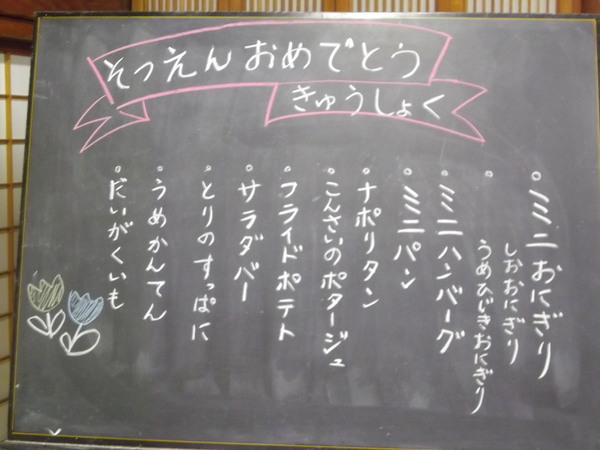 そつえんおめでとう
きゅうしょく
。ミニおにぎり
しおおにぎり
。うめひじきおにぎり
。ミニハンバーグ
。ミニパン
。ナポリタン
。こんさいのポタージュ
。フライドポテト
。サラダバー
。とりのすっぱに
。うめかんてん
。だいがくいも